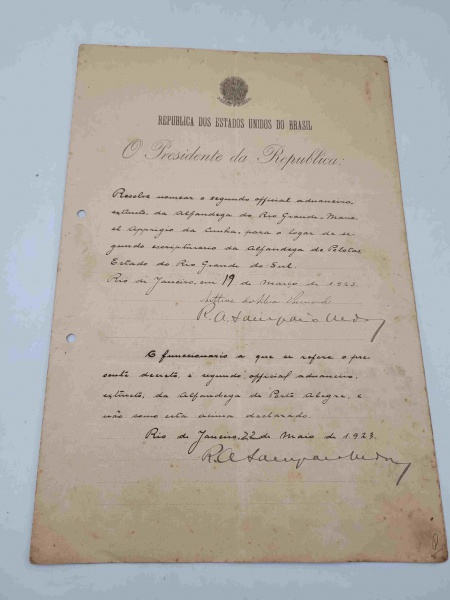 REPUBLICA DOS ESTADOS UNIDOS DO BRASIL
O Presidente da Republica:
Resolve nomear o segundo official aduaneiro,
extincto, da Alfandega do Rio Grande, Mano-
el Apprigio da Cunha, para o logar de se-
gundo escripturario da Alfandega de Pelotas
Estado do Rio Grande do Sul.
Rio de Janeiro, em 19 de Março de 1923.
R. A. Sampaio Vidal
O funccionario a que se refere o pre
sente decreto, é segundo official aduaneiro,
extincto, da Alfandega de Porto Alegre, e
não como está acima declarado.
Rio de Janeiro, 22 de Maio de 1923.
R. A. Sampaio Vidal